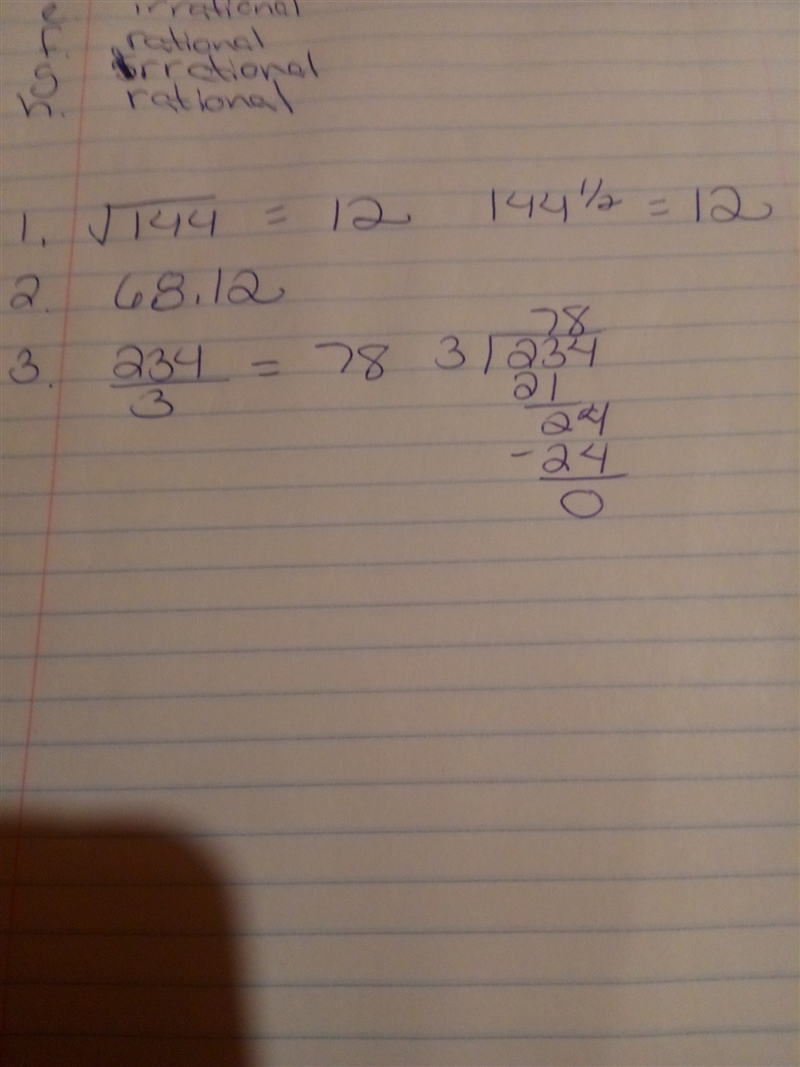 e. irrational
f. rational
g. irrational
h. rational
1. √144 = 12 144^1/2 = 12
2. 68.12
3. 234/3 = 78 3⟌234
78
21
24
- 24
0